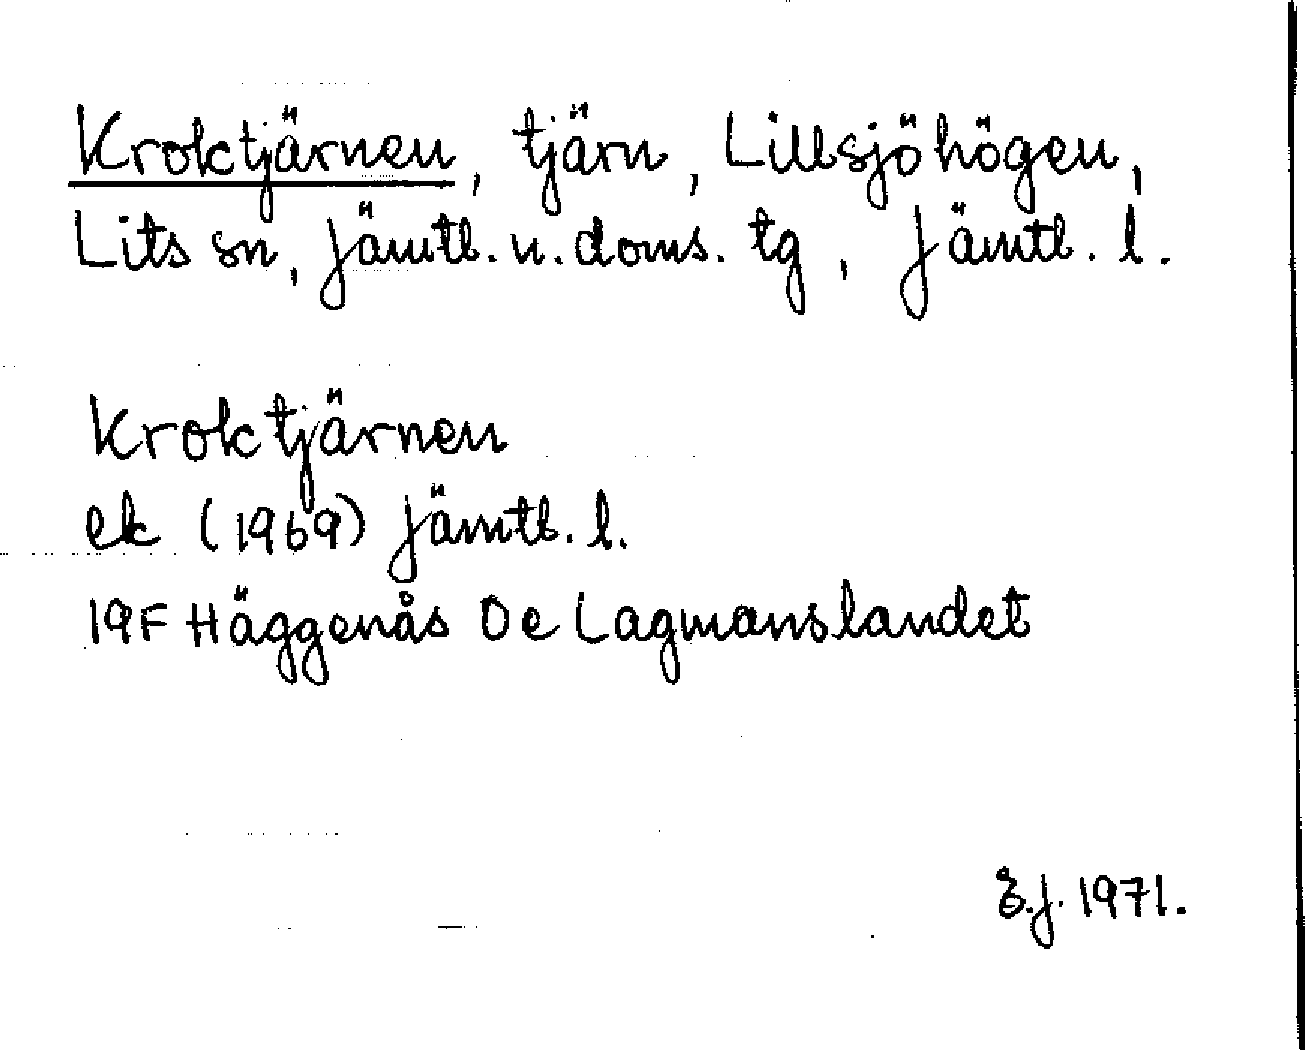 Kroktjärnen, tjärn, Lillsjöhögen,
Lits sn, Jämtl. n. doms. tg, Jämtl. l.
Kroktjärnen
ek (1969) Jämtl. l.
19F Häggenås 0e Lagmanslandet
E.J. 1971.